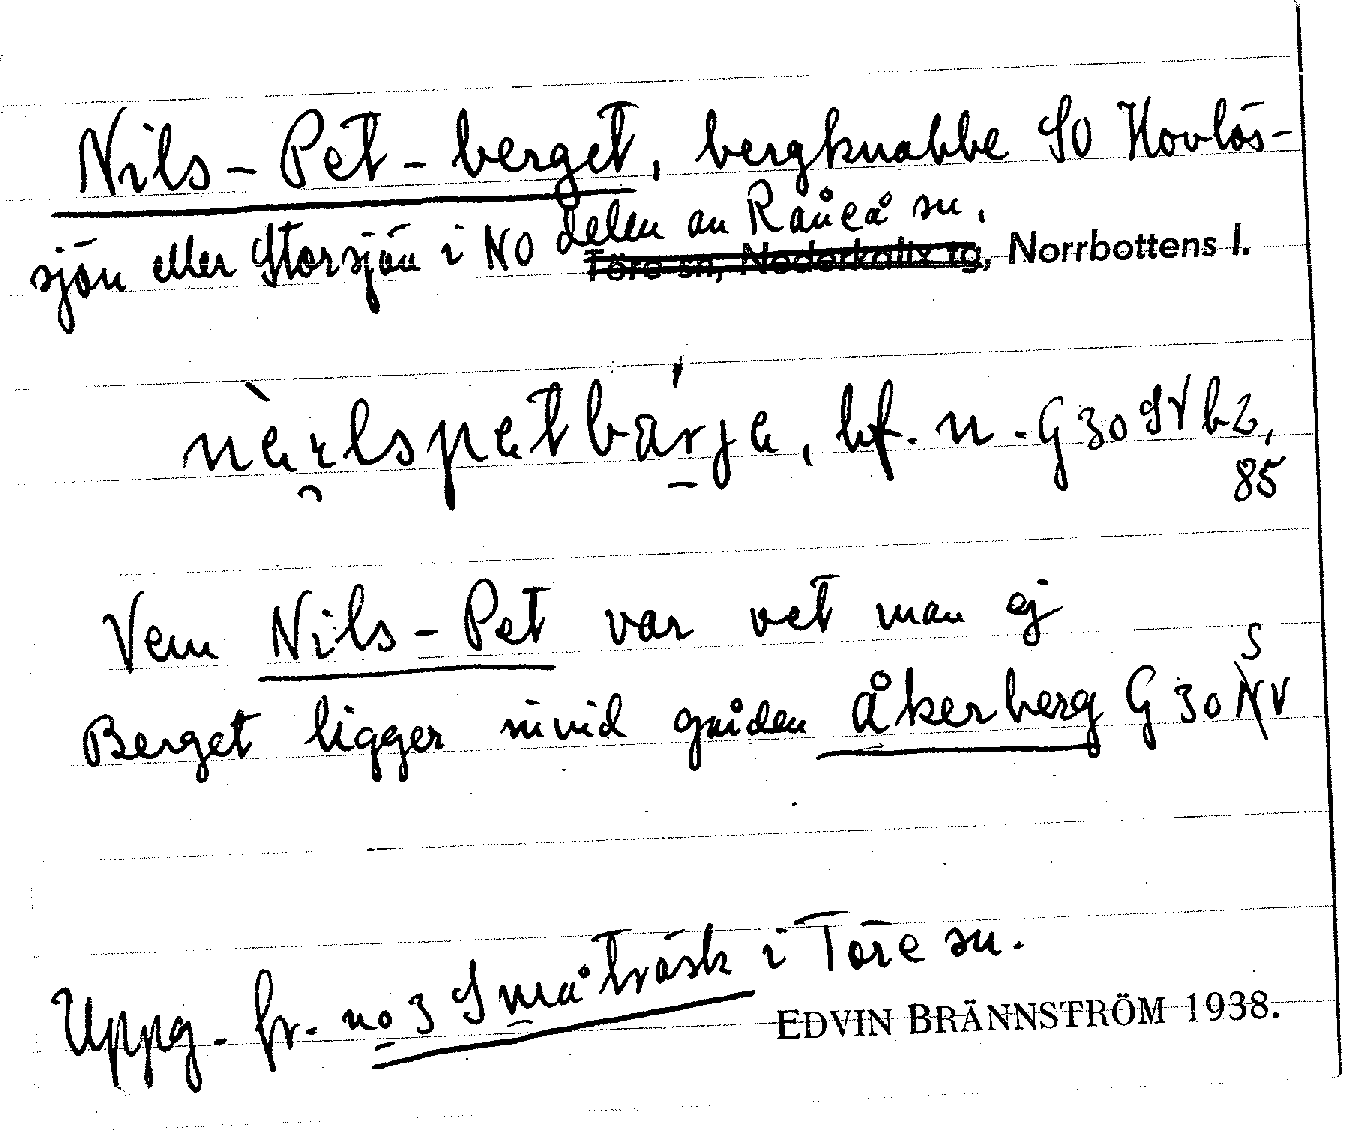 Nils-Pet-berget, bergknabbe SO Hovlös-
sjön eller Storsjön i NO delen av Råneå sn.
Töre sn, Nederkalix tg, Norrbottens l.
bf. n. G 30 SV b2,
85
Vem Nils-Pet var vet man ej
Berget ligger invid gården Åkerberg G 30 SV
Uppg. fr. no 3 Småträsk i Töre sn.
EDVIN BRÄNNSTRÖM 1938.